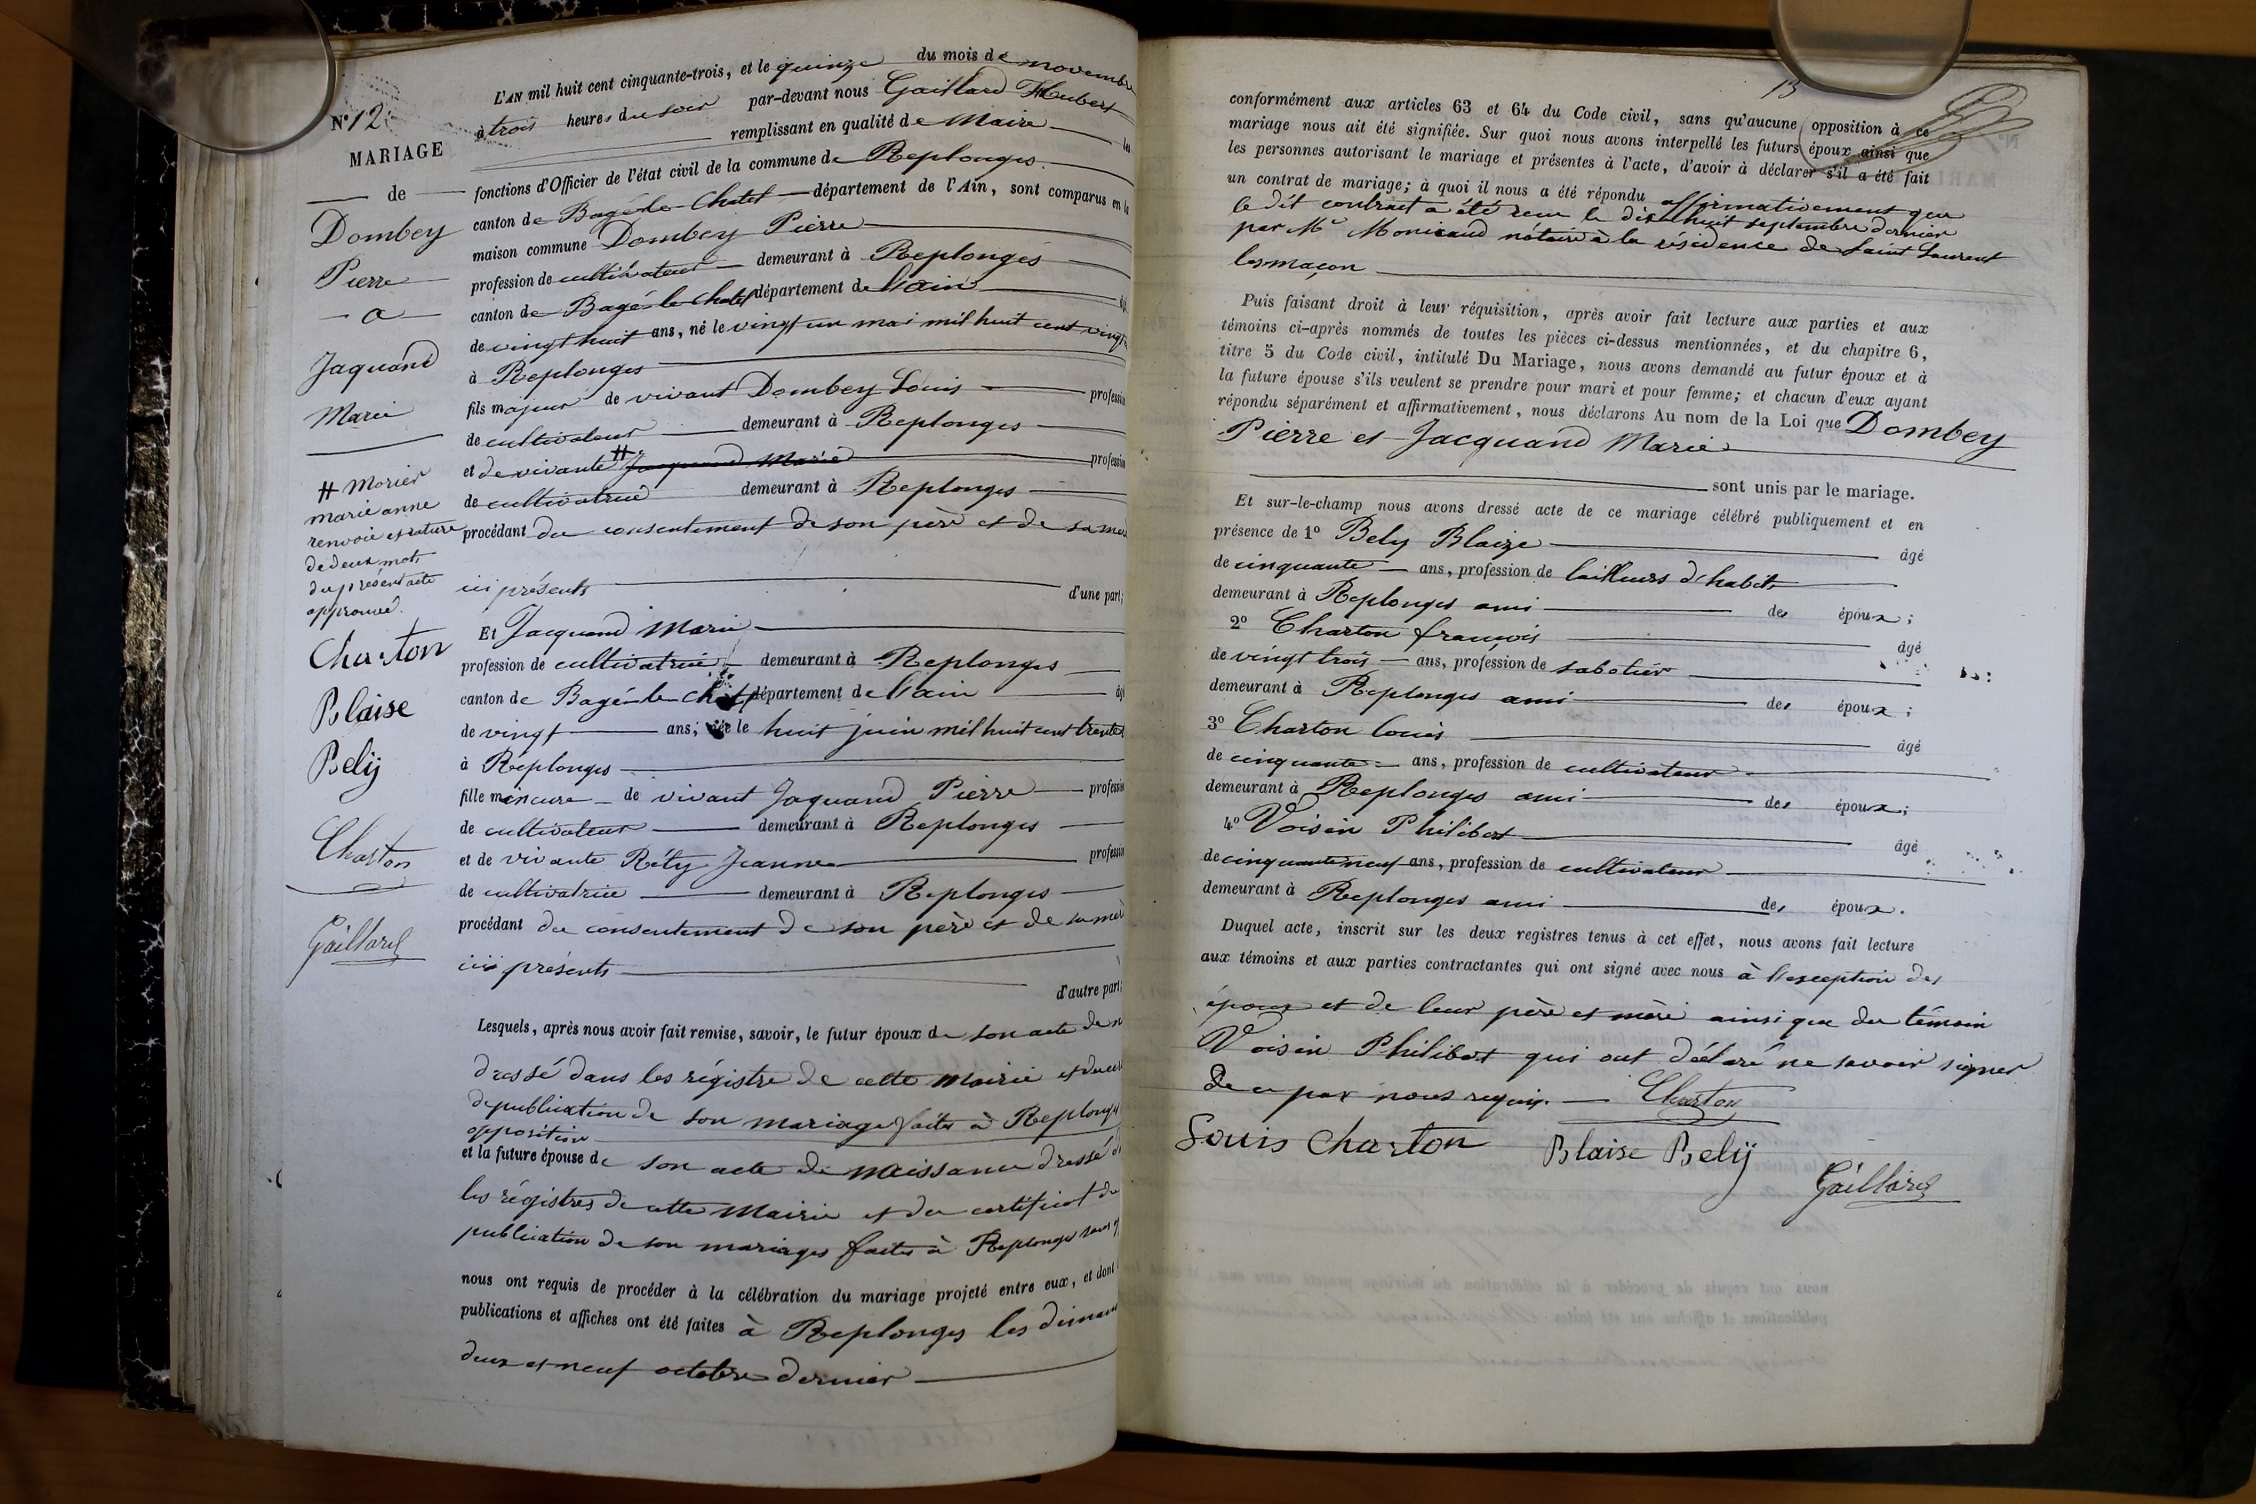 N° 12
MARIAGE
de
Dombey
Pierre
a
Jaquand
Marie
# Morier
marie anne
renvoi et rature
de deux mots
du présent acte
approuvé.
Charton
Blaise
Bely
Charton
Gaillard
L'AN mil huit cent cinquante-trois, et le quinze du mois de novembre
à trois heures du soir par-devant nous Gaillard Hubert
remplissant en qualité de Maire les
fonctions d'Officier de l'état civil de la commune de Replonges
canton de Bagé-le-Chatel département de l'Ain, sont comparus en la
maison commune Dombey Pierre
profession de cultivateur demeurant à Replonges
canton de Bagé-le-Chatel département de l'ain
de vingt huit ans, né le vingt un mai mil huit cent vingt
à Replonges
fils majeur de vivant Dombey Louis profession
de cultivateur demeurant à Replonges
et de vivante # Jacquand Marie profession
de cultivatrice demeurant à Replonges
procédant du consentement de son père et de sa mère
ici présents d'une part;
Et Jacquand Marie
profession de cultivatrice demeurant à Replonges
canton de Bagé-le-Chatel département de l'ain
de vingt ans; née le huit juin mil huit cent trente
à Replonges
fille mineure de vivant Jaquand Pierre profession
de cultivateur demeurant à Replonges
et de vivante Réty Jeanne profession
de cultivatrice demeurant à Replonges
procédant du consentement de son père et de sa mère
ici présents
d'autre part;
Lesquels, après nous avoir fait remise, savoir, le futur époux de son acte de
dressé dans les régistre de cette Mairie et du
de publication de son mariage faites à Replonges
opposition
et la future épouse de son acte de naissance dressé
les régistres de cette Mairie et du certificat de
publication de son mariages faites à Replonges sans
nous ont requis de procéder à la célébration du mariage projeté entre eux, et dont
publications et affiches ont été faites à Replonges les
deux et neuf octobre dernier
13
conformément aux articles 63 et 64 du Code civil, sans qu'aucune opposition à ce
mariage nous ait été signifiée. Sur quoi nous avons interpellé les futurs époux ainsi que
les personnes autorisant le mariage et présentes à l'acte, d'avoir à déclarer s'il a été fait
un contrat de mariage; à quoi il nous a été répondu affirmativement que
le dit contrat a été reçu le dix huit septembre dernier
par Me Monicaud notaire à la résidence de Saint Laurent
les maçon
Puis faisant droit à leur réquisition, après avoir fait lecture aux parties et aux
témoins ci-après nommés de toutes les pièces ci-dessus mentionnées, et du chapitre 6,
titre 5 du Code civil, intitulé Du Mariage, nous avons demandé au futur époux et à
la future épouse s'ils veulent se prendre pour mari et pour femme; et chacun d'eux ayant
répondu séparément et affirmativement, nous déclarons Au nom de la Loi que Dombey
Pierre et Jacquand Marie
sont unis par le mariage.
Et sur-le-champ nous avons dressé acte de ce mariage célébré publiquement et en
présence de 1° Bely Blaize âgé
de cinquante ans, profession de tailleurs d'habits
demeurant à Replonges ami des époux;
2° Charton françois âgé
de vingt trois ans, profession de sabotier
demeurant à Replonges ami des époux;
3° Charton louis âgé
de cinquante ans, profession de cultivateur
demeurant à Replonges ami des époux;
4° Voisin Philibert âgé
de cinquante neuf ans, profession de cultivateur
demeurant à Replonges ami des époux.
Duquel acte, inscrit sur les deux registres tenus à cet effet, nous avons fait lecture
aux témoins et aux parties contractantes qui ont signé avec nous à l'exception des
époux et de leur père et mère ainsi que du témoin
Voisin Philibert qui ont déclaré ne savoir signer
de ce par nous requis. Charton
Louis Charton Blaise Bely
Gaillard